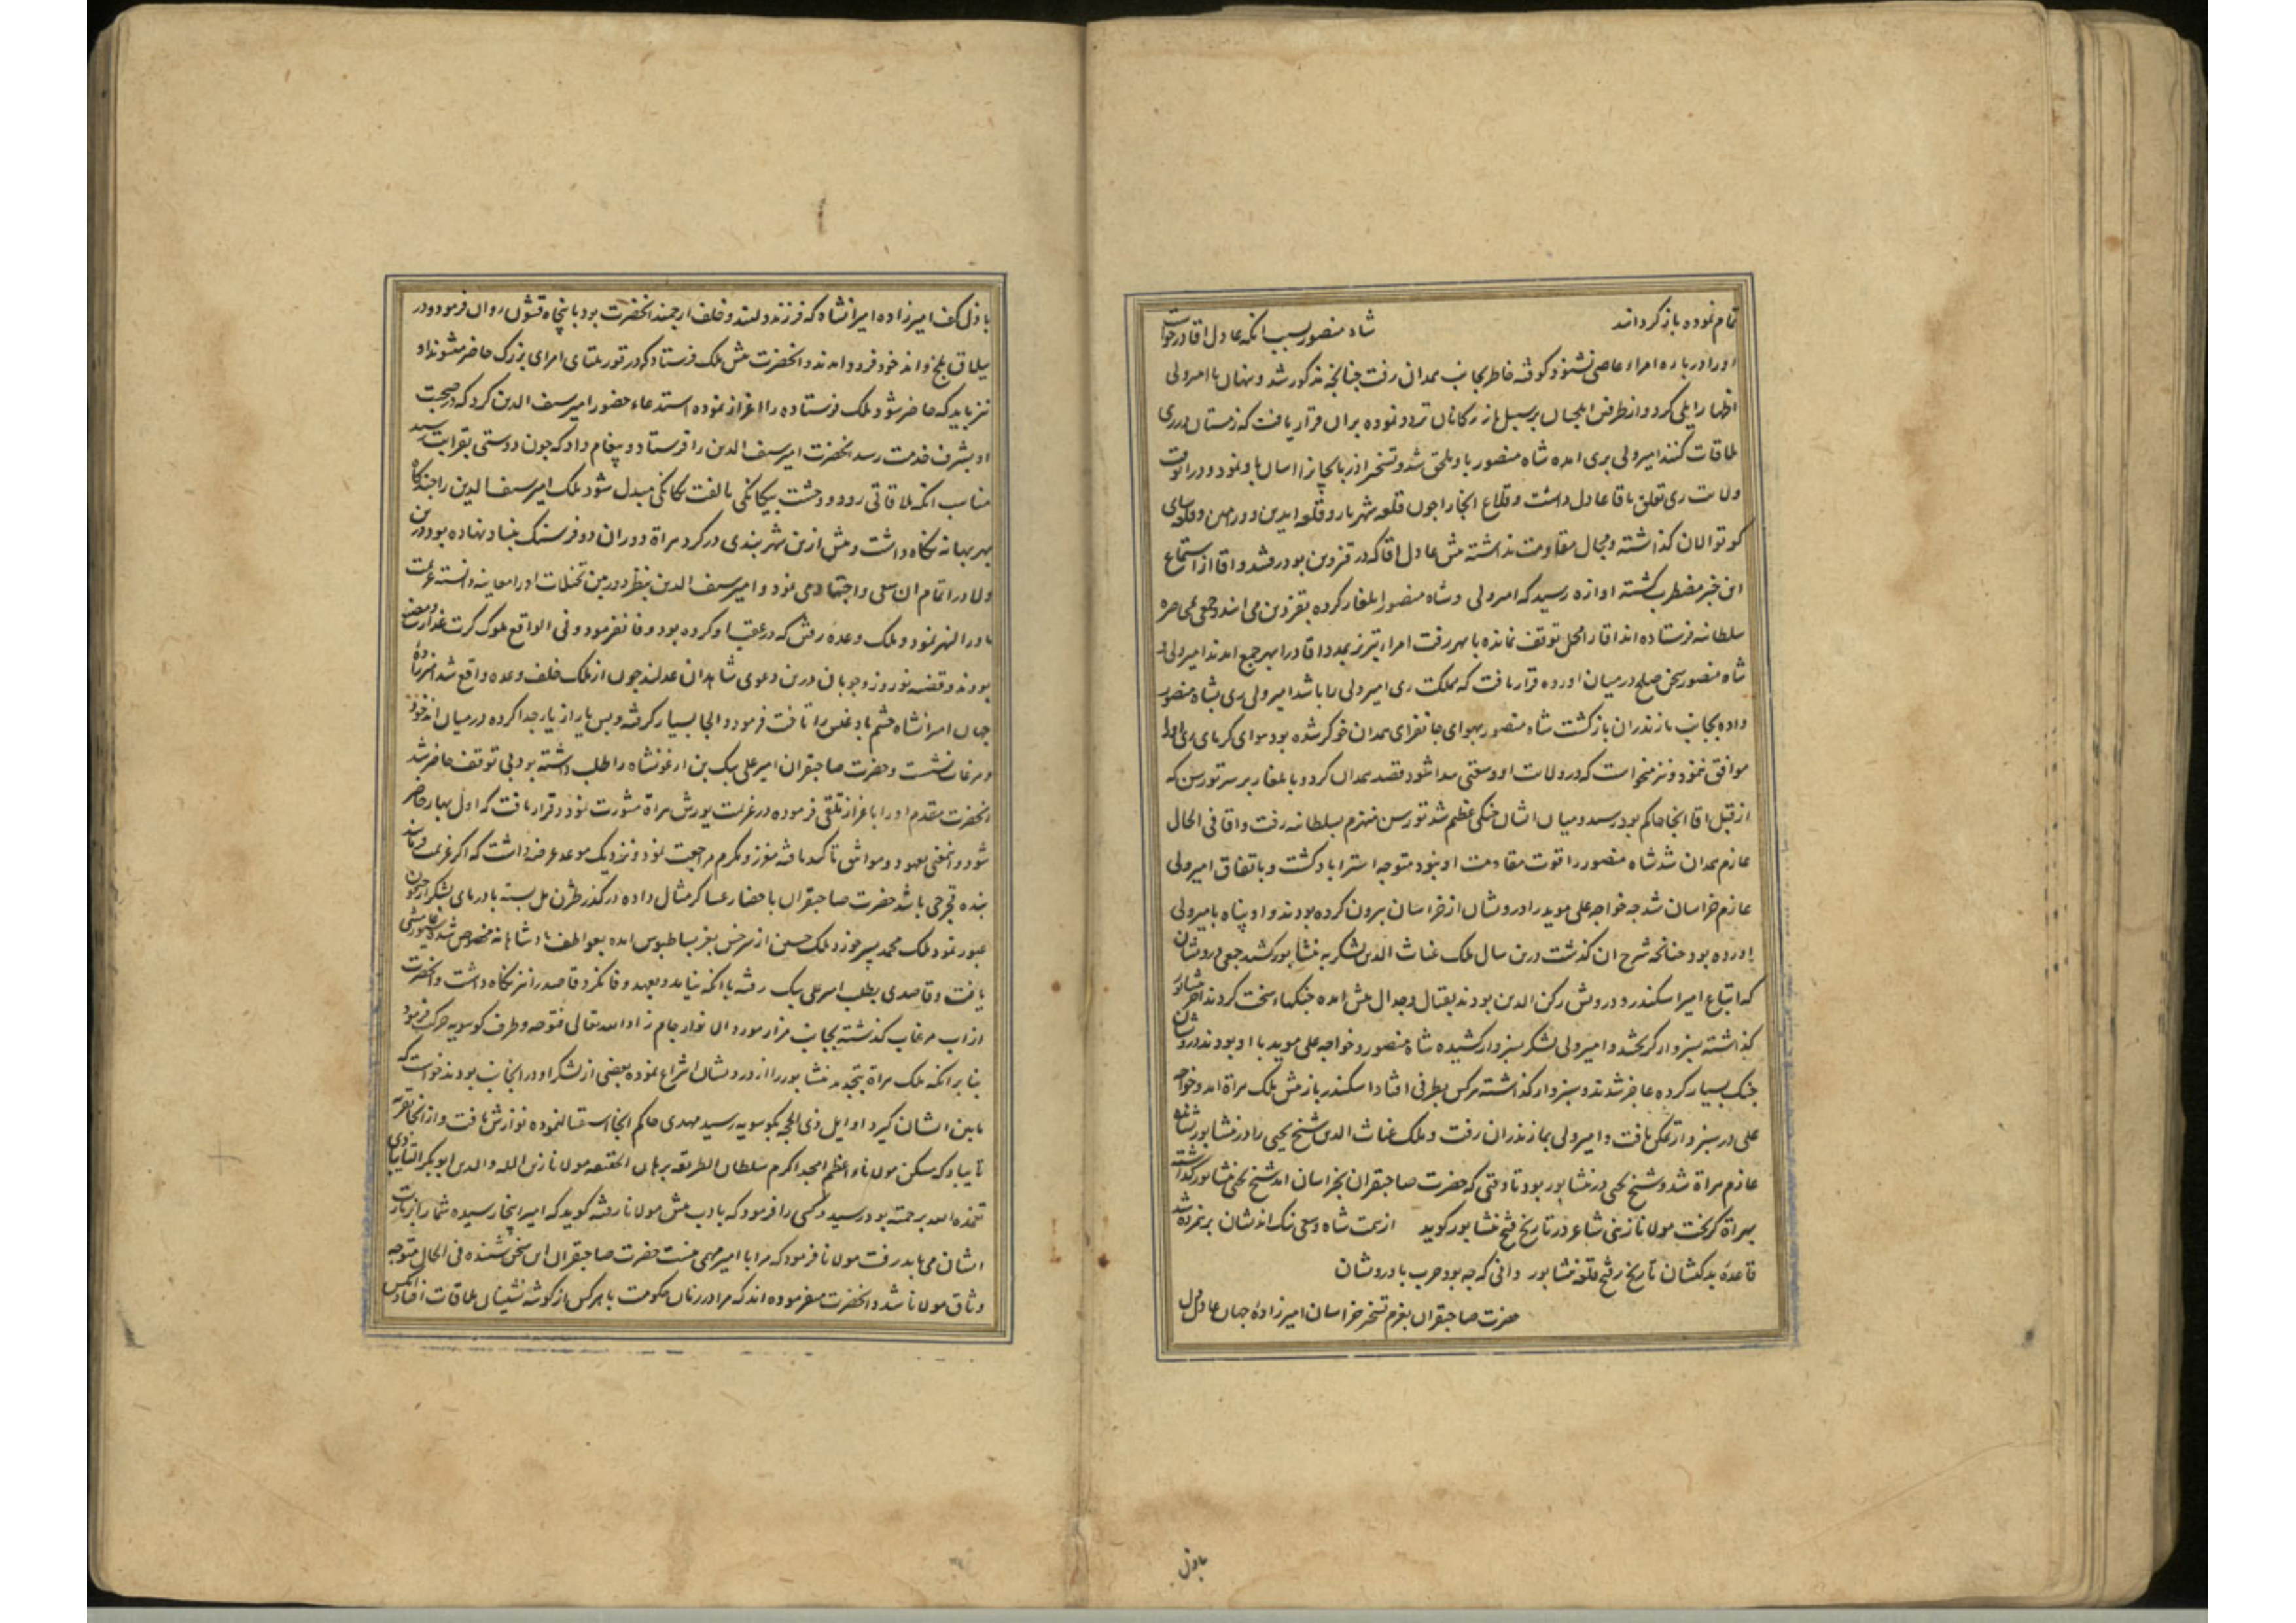 تمام نموده باز کردانند شاه منصور بسبب انکه عادل اقا درخواست
اورا در باره امراء عاصی نشنود کوفته خاطر بجانب همدان رفت چنانچه مذکور شد و پنهان با امیر ولی
اظهار ایلی کرد و از طرفین ایلچیان بر سبیل بازرکانان تردد نموده بران قرار یافت که زمستان در ری
ملاقات کنند امیر ولی بری امده شاه منصور باو ملحق شد و تسخیر اذربایجانرا اسان باو نمود و دران وقت
ولایت ری تعلق باقا عادل داشت و قلاع انجا را چون قلعه شهریار و قلعه ایدین و ورامین و قلعهای
کوتوالان کذاشته و مجال مقاومت نداشته پیش عادل اقا که در قزوین بود رفتند و اقا از استماع
این خبر مضطرب کشته اوازه رسید که امیر ولی و شاه منصور ایلغار کرده بقزوین می ایند و جمعی بمحاصره
سلطانیه فرستاده اند اقا را محل توقف نمانده بابهر رفت امراء تبریز بمدد اقا در ابهر جمع امدند امیر ولی و
شاه منصور سخن صلح در میان اورده قرار یافت که مملکت ری امیر ولی را باشد امیر ولی ری بشاه منصور
داده بجانب مازندران بازکشت شاه منصور بهوای جانفزای همدان خوکر شده بود هوای کرمای ری اورا
موافق ننمود و نیز میخواست که در ولایت او وسعتی پیدا شود قصد همدان کرد و بایلغار بر سر تورسن که
از قبل اقا انجا حاکم بود رسید و میان ایشان جنکی عظیم شد تورسن منهزم بسلطانیه رفت و اقا فی الحال
عازم همدان شد شاه منصور را قوت مقاومت او نبود متوجه استراباد کشت و باتفاق امیر ولی
عازم خراسان شد چه خواجه علی موید را درویشان از خراسان بیرون کرده بودند و او پناه بامیر ولی
اورده بود چنانچه شرح ان کذشت درین سال ملک غیاث الدین لشکر به نشابور کشید جمعی درویشان
که اتباع امیر اسکندر و درویش رکن الدین بودند بقتال و جدال پیش امده جنکهاء سخت کردند اخر نشابور
کذاشته بسبزوار کریختند و امیر ولی لشکر بسبزوار کشیده شاه منصور و خواجه علی موید با او بودند درویشان
جنک بسیار کرده عاجز شدند و سبزوار کذاشته هرکس بطرفی افتاد اسکندر باز پیش ملک هراة امد و خواجه
علی در سبزوار تمکن یافت و امیر ولی بمازندران رفت و ملک غیاث الدین شیخ یحیی را در نشابور نشانده
عازم هراة شد و شیخ یحیی در نشابور بود تا وقتی که حضرت صاحبقران بخراسان امد شیخ یحیی نشابور کذاشته
بهراة کریخت مولانا زینی شاعر در تاریخ فتح نشابور کوید از همت شاه وسعی نیک اندیشان برنمرده شد
قاعده بدکیشان تاریخ فتح قلعه نشابور دانی که چه بود حرب با درویشان
حضرت صاحبقران بعزم تسخیر خراسان امیرزاده جهان عادل دل
باذل
باذل کف امیرزاده امیرانشاه که فرزند دلبند و خلف ارجمند انحضرت بود با پنجاه قشون روان فرمود و در
ییلاق بلخ و اندخود فرود امدند و انحضرت پیش ملک فرستاد که در قوریلتای امرای بزرک حاضر میشوند او
نیز باید که حاضر شود ملک فرستاده را اعزاز نموده استدعاء حضور امیر سیف الدین کرد که در صحبت
او بشرف خدمت رسد انحضرت امیر سیف الدین را فرستاد و پیغام داد که چون دوستی بقرابت رسید
مناسب انکه ملاقاتی رود و وحشت بیکانکی بالفت یکانکی مبدل شود ملک امیر سیف الدین را چندکاه
بهر بهانه نکاه داشت و پیش ازین شهربندی در کرد هراة دوران دو فرسنک بنیاد نهاده بود درین
ولا در اتمام ان سعی و اجتهاد می نمود و امیر سیف الدین بنظر دوربین تخیلات اورا معاینه دانسته عزیمت
ماورالنهر نمود و ملک وعده رفتن که در عقب او کرده بود وفا نفرمود و فی الواقع ملوک کرت غدار
بودند و قضیه نوروز و چوبان درین دعوی شاهدان عدلند چون از ملک خلف وعده واقع شد امیرزاده
جهان امیرانشاه حشم بادغیس را تاخت فرمود و الجا بسیار کرفته و پس یار از یار جدا کرده در میان اندخود
و مرغاب نشست و حضرت صاحبقران امیر علی بیک بن ارغونشاه را طلب داشته بود بی توقف حاضر شد
انحضرت مقدم اورا باعزاز تلقی فرموده در عزیمت یورش هراة مشورت نمود و قرار یافت که اول بهار حاضر
شود و انمعنی بعهود و مواثیق تاکید یافته معزز و مکرم مراجعت نمود و نزدیک موعد عرضه داشت که اکر عزیمت فرمایند
بنده قجرجی باشد حضرت صاحبقران باحضار عساکر مثال داده در کذر ترمذ پل بسته بادریای لشکر از جیحون
عبور نمود ملک محمد پسر خوزد ملک حسین از سرخس بعز بساط بوس امده بعواطف پادشاهانه مخصوص شد و سیورغامیشی
یافت و قاصدی بطلب امیر علی بیک رفته با انکه نیامد و بعهد وفا نکرد قاصد را نیز نکاه داشت و انحضرت
از اب مرغاب کذشته بجانب مزار مورد انوار جام زاد الله تعالی متوجه و طرف کوسویه حرکت فرمود
بنابر انکه ملک هراة بتجدید نشابور را از درویشان انتزاع نموده بعضی از لشکر او در انجانب بودند خواست که
مابین ایشان کیرد اوایل ذی الحجه بکوسویه رسید مهدی حاکم انجا استقبال نموده نوازش یافت و از انجا بقریه
تایباد که مسکن مولانا اعظم امجد اکرم سلطان الطریقه برهان الحقیقه مولانا زین الملة والدین ابوبکر التایبادی
تغمده الله برحمته بود رسید و کسی را فرمود که بادب پیش مولانا رفته کوید که امیر اینجا رسیده شما را بزیارت
ایشان می باید رفت مولانا فرمود که مرا با امیر مهمی نیست حضرت صاحبقران این سخن شنیده فی الحال متوجه
وثاق مولانا شد و انحضرت میفرموده اند که مرا در زمان حکومت با هرکس از کوشه نشینان ملاقات افتاد